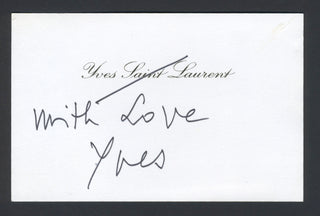 Yves Saint Laurent
With Love
Yves